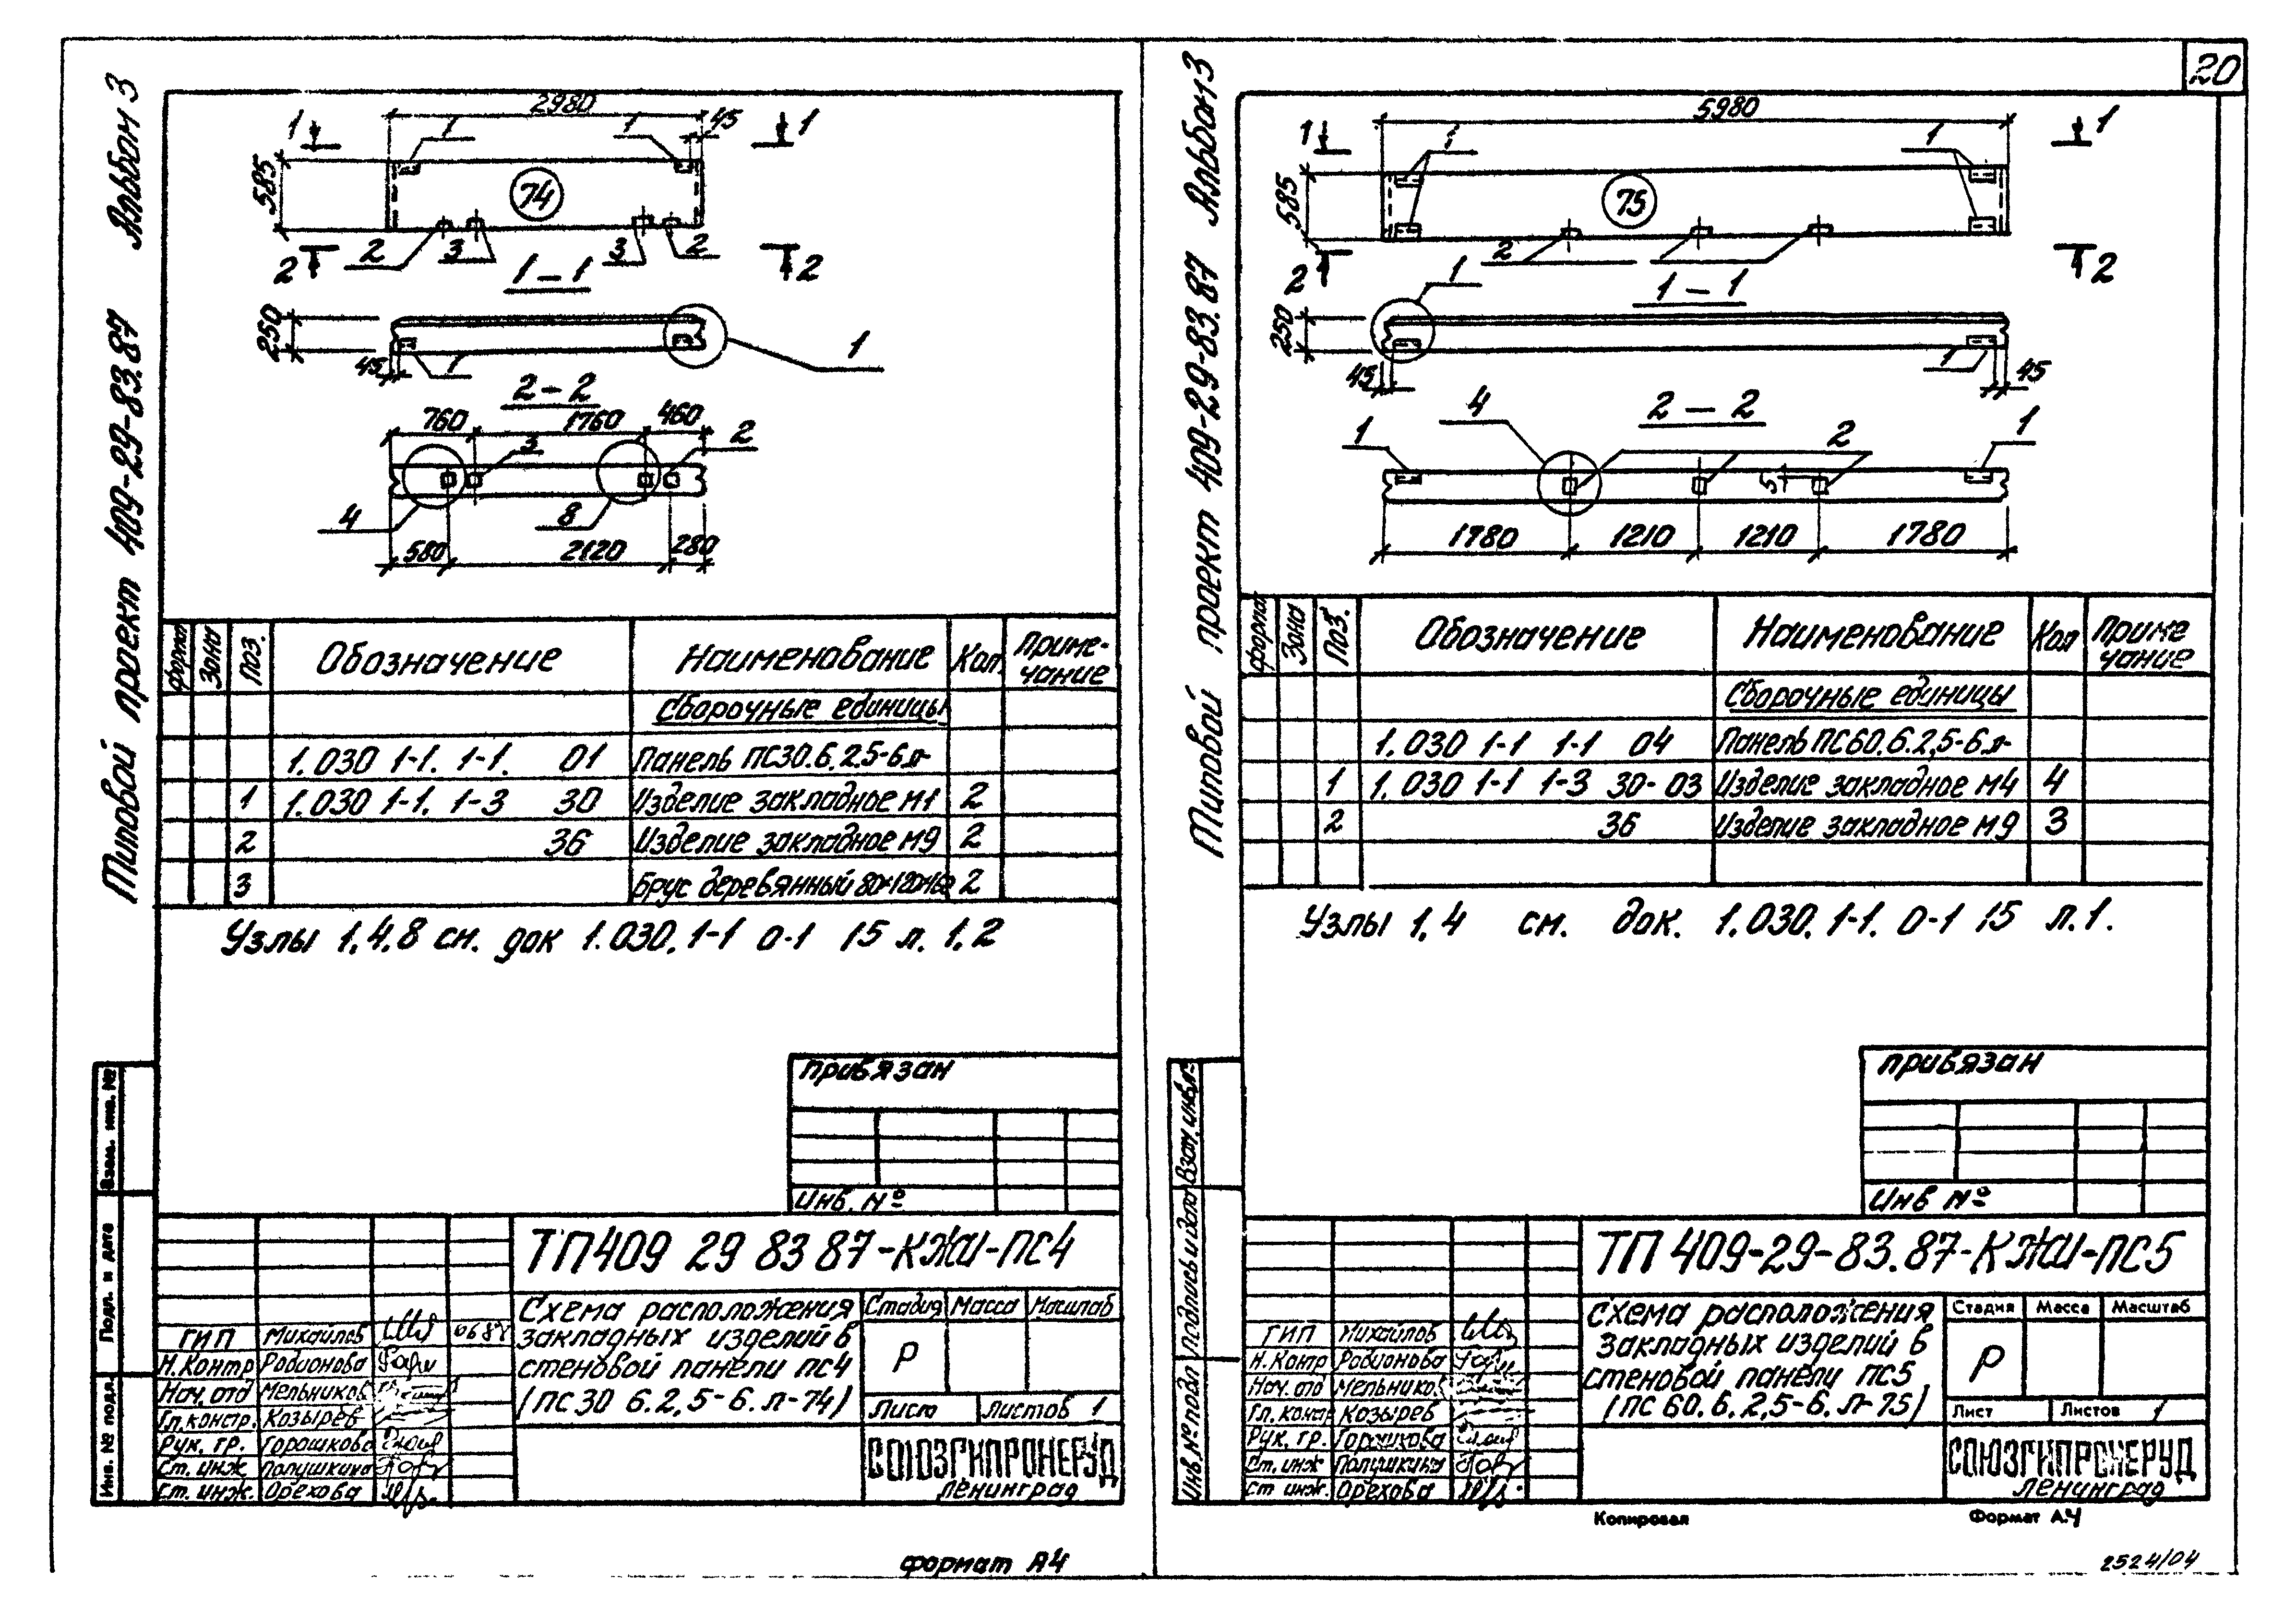 20
Типовой проект 409-29-83.87 Альбом 3
2980
45
1 1
1 1
585
74
2 3 3 2
2 2
1-1
250
45
1
1
2-2
760 1760 460
3 2
4 8
580 2120 280
Формат Зона Поз. Обозначение Наименование Кол. Приме-
чание
Сборочные единицы
1.030 1-1. 1-1. 01 Панель ПС30.6.2.5-6.л-
1 1.030 1-1. 1-3 30 Изделие закладное М1 2
2 36 Изделие закладное М9 2
3 Брус деревянный 2
Узлы 1,4,8 см. док 1.030.1-1 0-1 15 л. 1,2
Привязан
Инв. №
Взам. инв. №
Подл. и дата
Инв. № подл.
ТП409 29 83 87-КЖИ-ПС4
Схема расположения
закладных изделий в
стеновой панели ПС4
(ПС 30 6.2,5-6.л-74)
Стадия Масса Масштаб
Р
Лист Листов 1
СОЮЗГИПРОНЕРУД
Ленинград
ГИП Михайлов 06 87
Н.Контр Родионова
Нач. отд Мельников
Гл.констр. Козырев
Рук. гр. Горошкова
Ст. инж Полушкина
Ст. инж. Орехова
Формат А4
Типовой проект 409-29-83.87 Альбом 3
5980
1 1
1 1
585
75
2
2 2
1-1
1
250
45
1
45
4
2-2
1 2 1
5
1780 1210 1210 1780
Формат Зона Поз. Обозначение Наименование Кол Приме
чание
Сборочные единицы
1.030 1-1 1-1 04 Панель ПС60.6.2,5-6.л-
1 1.030 1-1 1-3 30-03 Изделие закладное М4 4
2 36 Изделие закладное М9 3
Узлы 1,4 см. док. 1.030.1-1. 0-1 15 л.1.
Привязан
Инв №
Взам. инв. №
Подпись и дата
Инв. № подл
ТП 409-29-83.87-КЖИ-ПС5
Схема расположения
закладных изделий в
стеновой панели ПС5
(ПС 60.6.2,5-6.л-75)
Стадия Масса Масштаб
Р
Лист Листов 1
СОЮЗГИПРОНЕРУД
Ленинград
ГИП Михайлов
Н.Контр Родионова
Нач. отд Мельников
Гл. констр Козырев
Рук. гр. Горошкова
Ст. инж Полушкина
Ст инж. Орехова
Копировал Формат А.4
2524/04